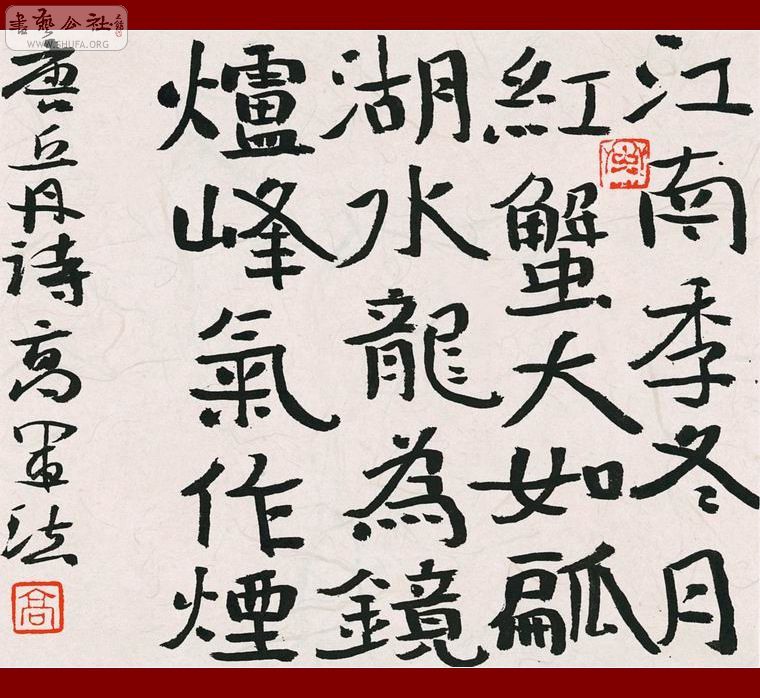 書藝公社
WWW.SHUFA.ORG
江南季冬月
紅蟹大如
湖水龍為鏡
爐峰氣作煙
唐丘丹詩高軍法
高